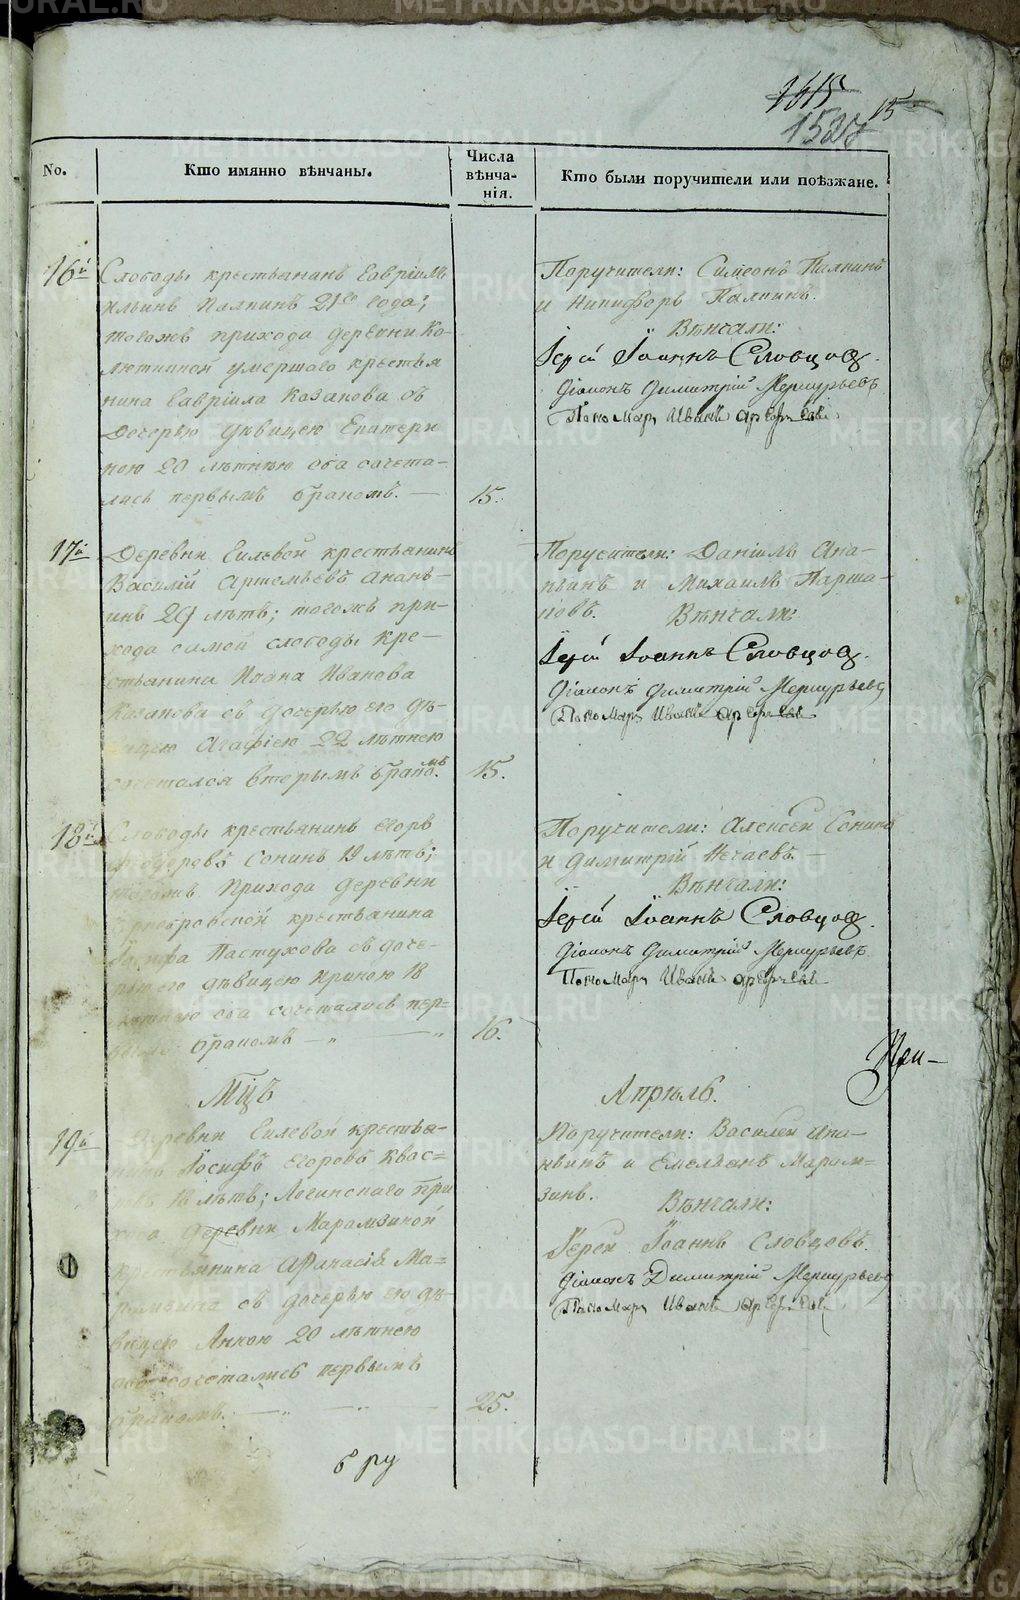 1615
15
1527
No.
Кто имянно вѣнчаны.
Числа
вѣнча-
нія.
Кто были поручители или поѣзжане.
16й
Слободы крестьянинъ Гавріилъ
Ильинъ Палкинъ 21го года;
тогожъ прихода деревни Ка-
люткиной умершаго крестья
нина Гавріила Казакова съ
дочерью дѣвицею Екатери
ною 20 лѣтнею оба сочета-
лись первымъ бракомъ. —
15.
Поручители: Симеонъ Палкинъ
и Никифоръ Палкинъ.
Вѣнчали:
Іерей Іоаннъ Словцовъ.
Діаконъ Димитрій Меркурьевъ
Пономарь Иванъ
17й
Деревни Гилевой крестьянинъ
Василій Артемьевъ Анань-
инъ 29 лѣтъ; тогожъ при-
хода самой слободы кре-
стьянина Иоана Иванова
Казакова съ дочерью его дѣ-
вицею Агафіею 22 лѣтнею
сочетался вторымъ бракомъ.
15.
Поручители: Даніилъ Ана-
ньинъ и Михаилъ Парша-
ковъ.
Вѣнчали:
Іерей Іоаннъ Словцовъ.
Діаконъ Димитрій Меркурьевъ
Пономарь Иванъ
18й
Слободы крестьянинъ Егоръ
Федоровъ Сонинъ 19 лѣтъ;
тогожъ прихода деревни
крестьянина
Іосифа Пастухова съ доче-
рью его дѣвицею Ириною 18
лѣтнею оба сочетались пер-
вымъ бракомъ — „ — „
16.
Поручители: Алексей Сонинъ
и Димитрій Нечаевъ. —
Вѣнчали:
Іерей Іоаннъ Словцовъ.
Діаконъ Димитрій Меркурьевъ
Пономарь Иванъ
Мцъ
Апрѣль.
19й
Деревни Гилевой крестья-
нинъ Іосифъ Егоровъ Квас-
18 лѣтъ; при
хода деревни Марамзиной
крестьянина Афанасія Ма-
рамзина съ дочерью его дѣ-
вицею Анною 20 лѣтнею
оба сочетались первымъ
бракомъ. — „ — „ —
25.
Поручители: Василей Ана-
ньинъ и Емельянъ Марам-
зинъ.
Вѣнчали:
Іерей Іоаннъ Словцовъ.
Діаконъ Димитрій Меркурьевъ
Пономарь Иванъ
METRIKI.GASO-URAL.RU